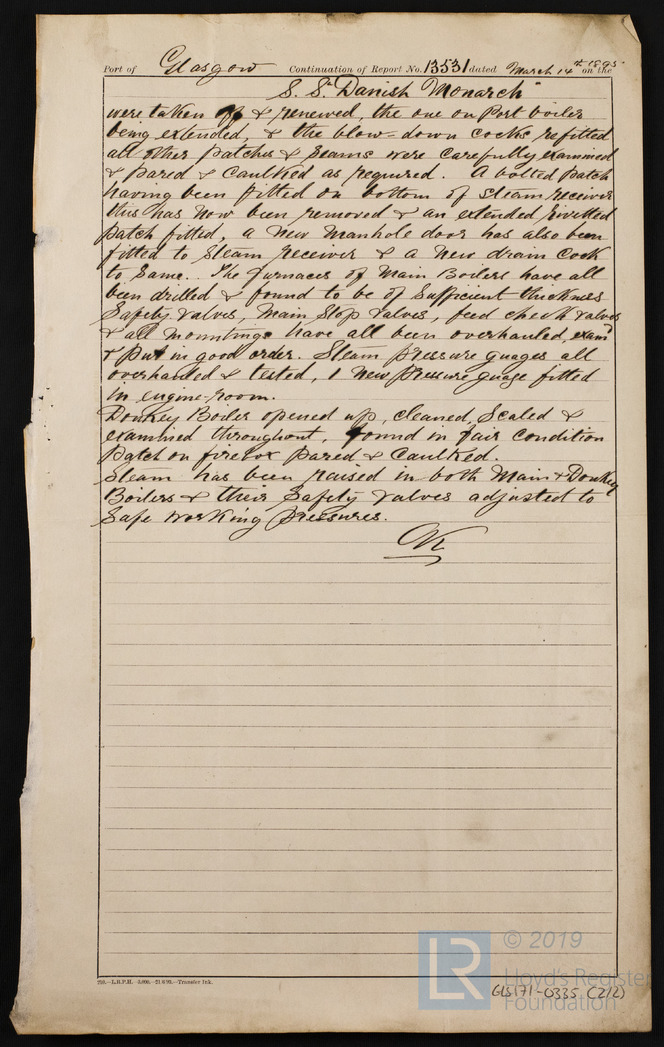 Port of Glasgow Continuation of Report No. 13531 dated March 14th 1895 on the
S. S. "Danish Monarch"
were taken off & renewed, the one on Port boiler
being extended, & the blow-down cocks refitted
all other patches & seams were carefully examined
& pared & caulked as required. A bolted patch
having been fitted on bottom of steam receiver
this has now been removed & an extended rivetted
patch fitted, a new manhole door has also been
fitted to steam receiver & a new drain cock
to same. The furnaces of Main Boilers have all
been drilled & found to be of sufficient thickness
Safety valves, Main Stop valves, feed check valves
& all mountings have all been overhauled, examd
& put in good order. Steam pressure guages all
overhauled & tested, 1 new pressure guage fitted
in engine-room.
Donkey Boiler opened up, cleaned, scaled &
examined throughout, found in fair condition
Patch on firebox pared & caulked.
Steam has been raised in both Main & Donkey
Boilers & their safety valves adjusted to
safe working pressures.
250.—L.R.P.H.—5,000.—21.9.93.—Transfer Ink.
LR © 2019
Lloyd's Register
Foundation
GLS171-0335 (2/2)